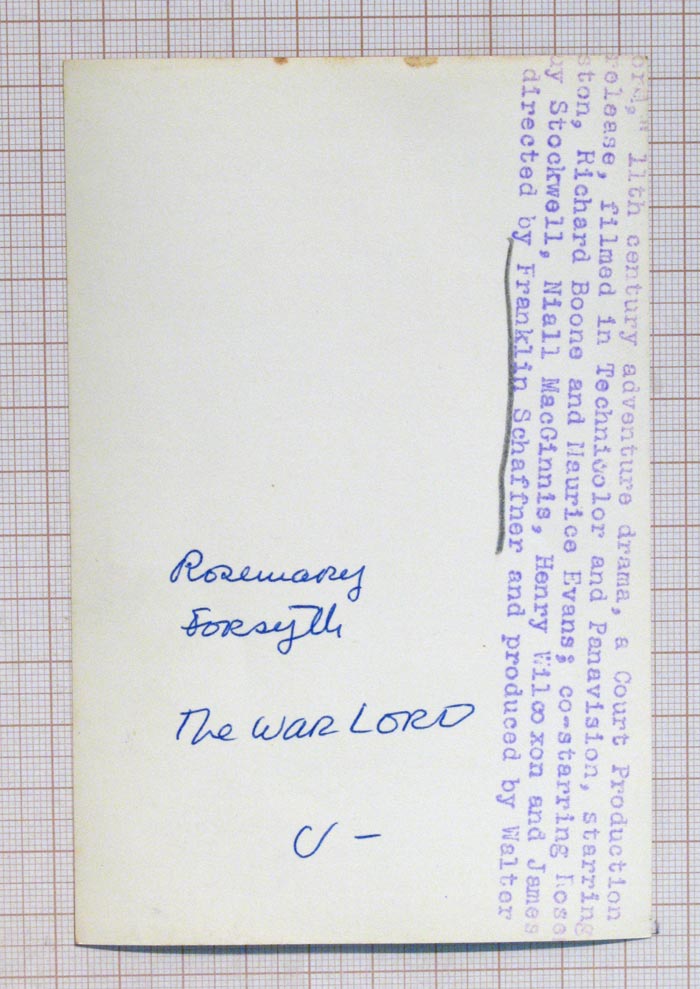 ord," 11th century adventure drama, a Court Production
release, filmed in Technicolor and Panavision, starring
ston, Richard Boone and Maurice Evans; co-starring Rose
uy Stockwell, Niall MacGinnis, Henry Wilcoxon and James
directed by Franklin Schaffner and produced by Walter
Rosemary
Forsyth
The WAR LORD
U -